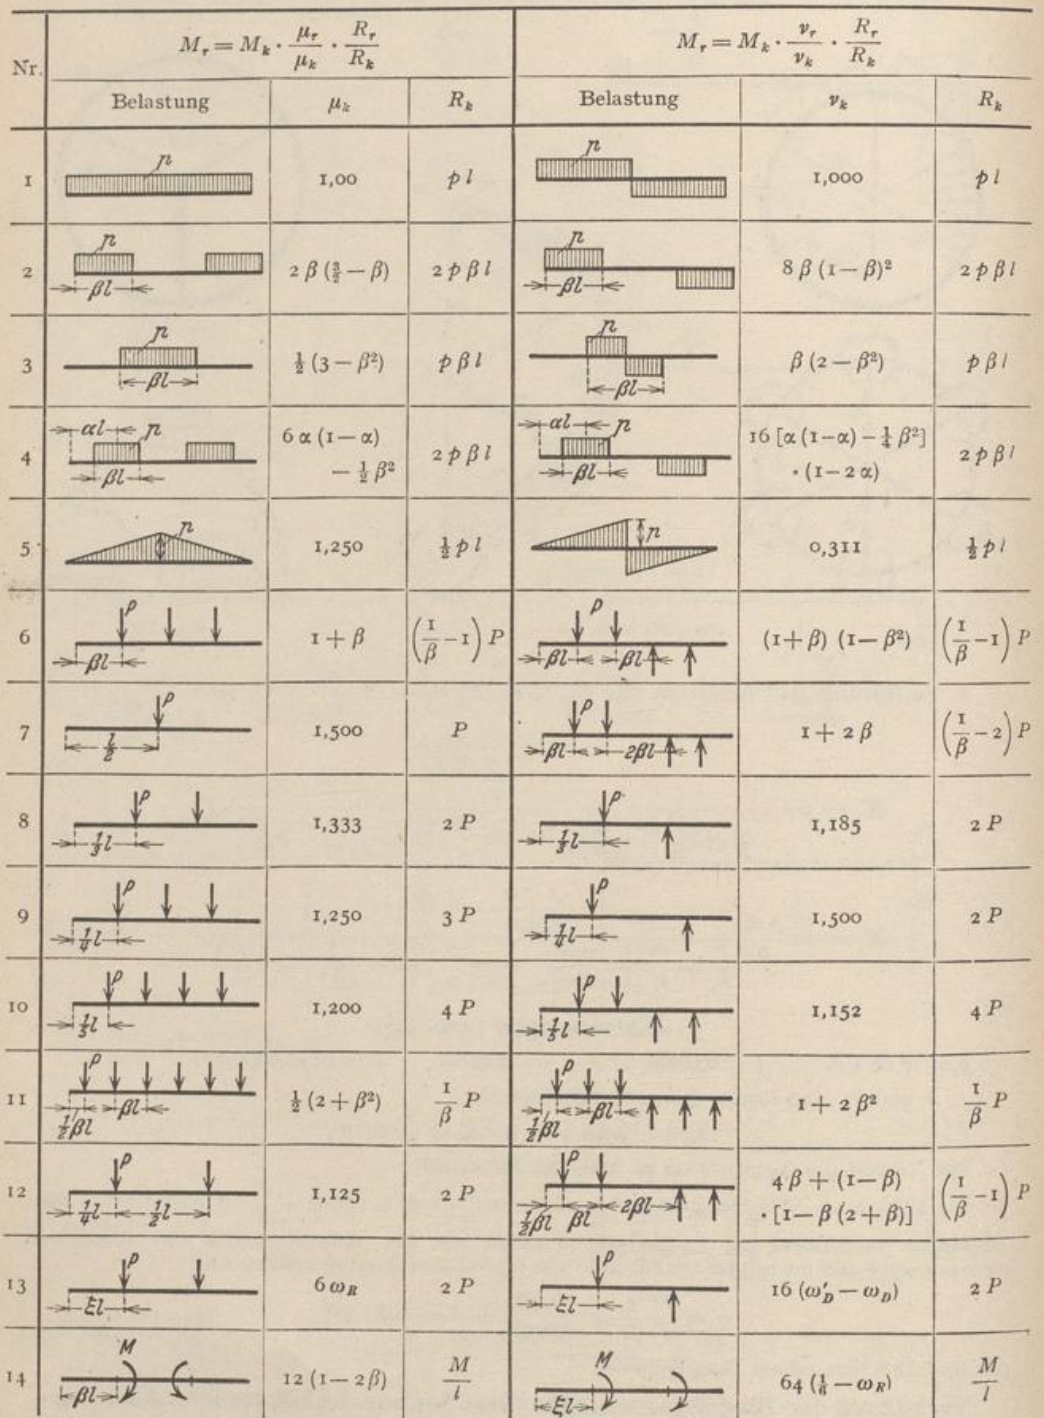 Nr.
M_r = M_k · μ_r/μ_k · R_r/R_k
M_r = M_k · ν_r/ν_k · R_r/R_k
Belastung μ_k R_k Belastung ν_k R_k
1 p 1,00 p l p 1,000 p l
2 p βl 2 β (3/2 − β) 2 p β l p βl 8 β (1 − β)² 2 p β l
3 p βl ½ (3 − β²) p β l p βl β (2 − β²) p β l
4 αl p βl 6 α (1 − α) − ½ β² 2 p β l αl p βl 16 [α (1 − α) − ¼ β²] · (1 − 2 α) 2 p β l
5 p 1,250 ½ p l p 0,311 ½ p l
6 P βl 1 + β (1/β − 1) P P βl βl (1 + β) (1 − β²) (1/β − 1) P
7 P l/2 1,500 P P βl 2βl 1 + 2 β (1/β − 2) P
8 P ⅓l 1,333 2 P P ⅓l 1,185 2 P
9 P ¼l 1,250 3 P P ¼l 1,500 2 P
10 P ⅕l 1,200 4 P P ⅕l 1,152 4 P
11 P ½βl βl ½ (2 + β²) 1/β P P ½βl βl 1 + 2 β² 1/β P
12 P ¼l ½l 1,125 2 P P ½βl βl 2βl 4 β + (1 − β) · [1 − β (2 + β)] (1/β − 1) P
13 P ξl 6 ω_R 2 P P ξl 16 (ω′_D − ω_D) 2 P
14 M βl 12 (1 − 2 β) M/l M ξl 64 (⅙ − ω_R) M/l